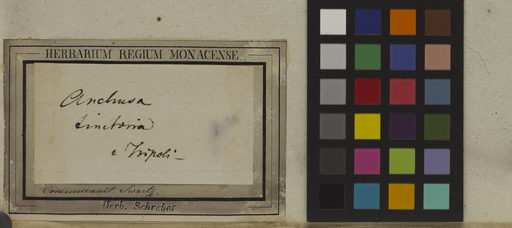 HERBARIUM REGIUM MONACENSE.
Anchusa
tinctoria
e Tripoli
Comunicavit Swartz
Herb. Schreber